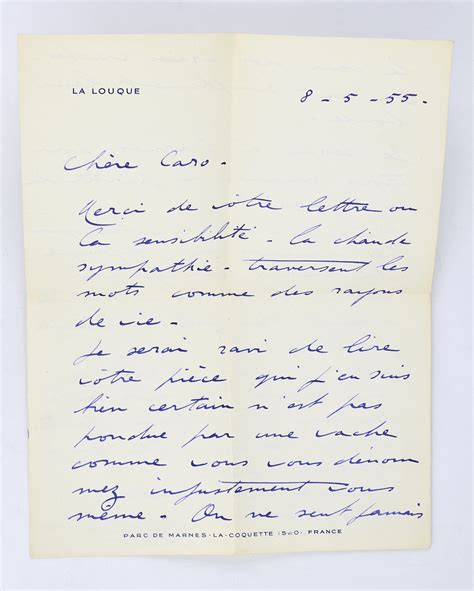 LA LOUQUE
8 - 5 - 55 -
Chère Caro -
Merci de vôtre lettre ou
la sensibilité - la chaude
sympathie - traversent les
mots comme des rayons
de vie -
Je serai ravi de lire
vôtre pièce qui j'en suis
bien certain n'est pas
pondue par une vache
comme vous vous dénom
mez injustement vous
même - On ne sent jamais
PARC DE MARNES-LA-COQUETTE (S-&-O). FRANCE